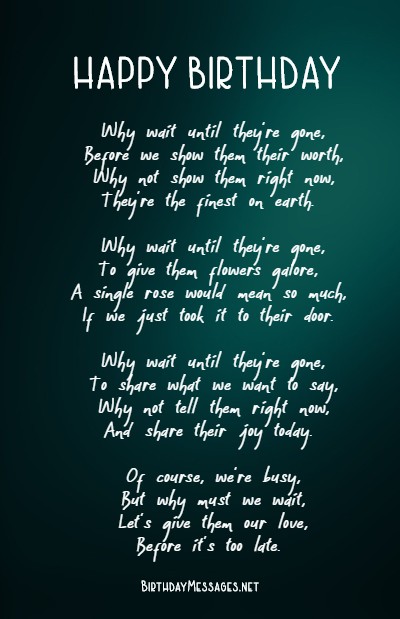 HAPPY BIRTHDAY
Why wait until they're gone,
Before we show them their worth,
Why not show them right now,
They're the finest on earth.
Why wait until they're gone,
To give them flowers galore,
A single rose would mean so much,
If we just took it to their door.
Why wait until they're gone,
To share what we want to say,
Why not tell them right now,
And share their joy today.
Of course, we're busy,
But why must we wait,
Let's give them our love,
Before it's too late.
BIRTHDAYMESSAGES.NET